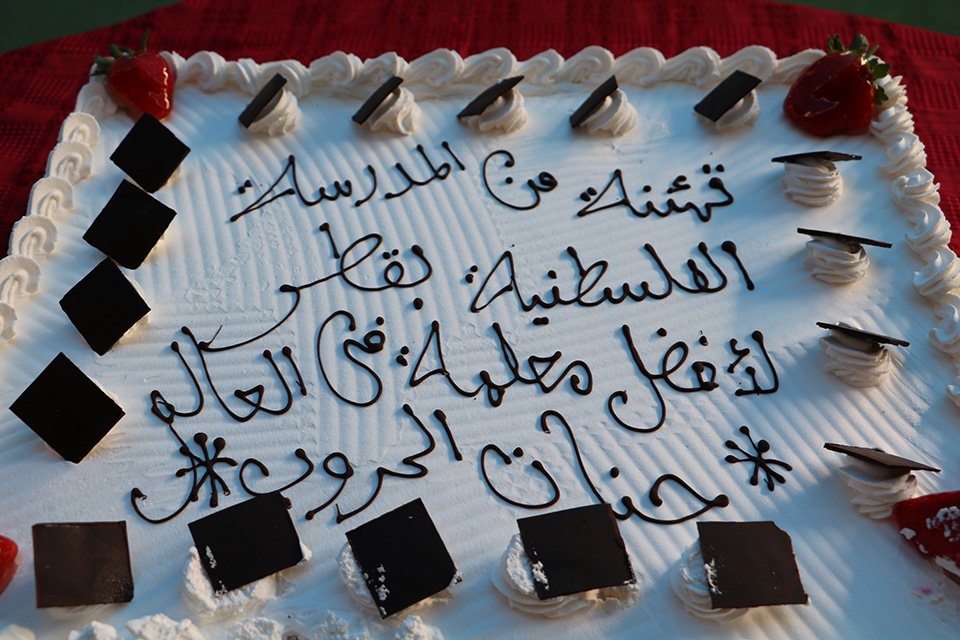 تهنئة من المدرسة
الفلسطنية بقطر
لأفضل معلمة في العالم
* حنان الحروب *